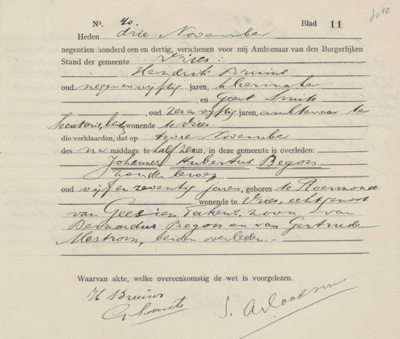 No. 40 Blad 11
Heden drie November
negentienhonderd een en dertig, verschenen voor mij Ambtenaar van den Burgerlijken
Stand der gemeente Vries:
Hendrik Bruins
oud negen en vijftig jaren, kleermaker
, en Geert Smits
, oud zes en vijftig jaren, ambtenaar ter
Secretarie, beiden wonende te Vries
die verklaarden, dat op twee November
des na middags te half zeven, in deze gemeente is overleden:
Johannes Hubertus Begon
zonder beroep
oud vijf en zeventig jaren, geboren te Roermond
wonende te Vries, echtgenoot
van Geesien Takens, zoon van
Bernardus Begon en van Gertruda
Mestrom, beiden overleden.
Waarvan akte, welke overeenkomstig de wet is voorgelezen.
H Bruins
G Smits